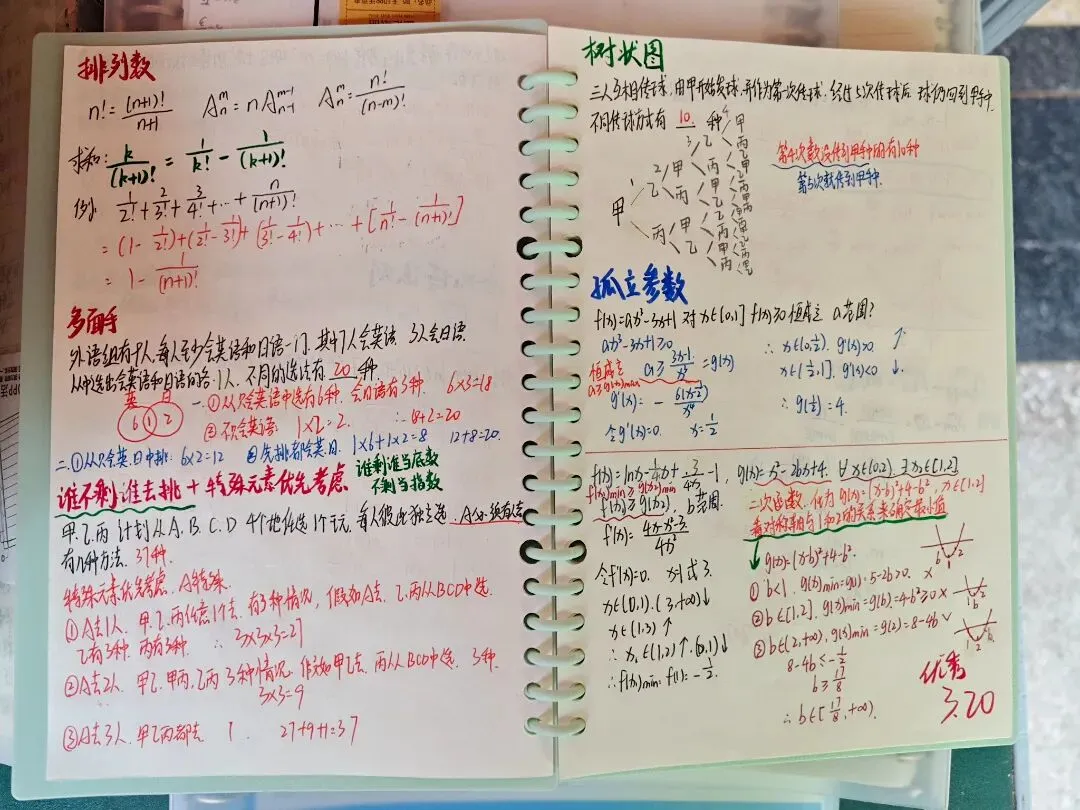 排列数
n! = (n+1)!/(n+1)  A_n^m = nA_{n-1}^{m-1}  A_n^m = n!/(n-m)!
求和: k/(k+1)! = 1/k! - 1/(k+1)!
例: 1/2! + 2/3! + 3/4! + … + n/(n+1)!
= (1 - 1/2!) + (1/2! - 1/3!) + (1/3! - 1/4!) + … + [1/n! - 1/(n+1)!]
= 1 - 1/(n+1)!
多面手
外语组有9人,每人至少会英语和日语一门,其中7人会英语 3人会日语.
从中选出会英语和日语的各1人.不同的选法有 20 种.
英 日
6 1 2
一.①从只会英语中选有6种.会日语有3种. 6×3=18
1×2=2. ∴18+2=20
二.①从只会英.日中挑: 6×2=12 1×6+1×2=8 12+8=20.
谁不剩谁去挑+特殊元素优先考虑
谁剩谁当底数
不剩当指数
甲.乙.丙 计划从A.B.C.D 4个地任选1个去,每人彼此独立选.
有几种方法. 37种.
特殊元素优先考虑,A特殊.
①A去1人,甲.乙.丙任意1个去.有3种情况,假如A去.乙.丙从BCD中选.
乙有3种.丙有3种 ∴3×3×3=27
②A去2人.甲乙.甲丙,乙丙3种情况. 甲乙去.丙从BCD中选. 3种.
3×3=9
③A去3人.甲乙丙都去 1. 27+9+1=37
树状图
三人互相传球,由甲开始发球,并作为第一次传球,经过5次传球后 球仍回到甲手中.
不同传球方式有 10 种
第4次数没传到甲手中的有10种
第5次数传到甲手中.
孤立参数
f(x)=ax³-3x+1 对x∈(0,1] f(x)≥0恒成立 a范围?
ax³-3x+1≥0
恒成立 a≥(3x-1)/x³=g(x)
a≥g(x)max
g'(x)= - 6(x-2)/x⁴
令g'(x)=0. x=1/2
∴x∈(0,1/2). g'(x)>0. ↑
x∈(1/2,1]. g'(x)<0 ↓.
∴g(1/2)=4.
f(x)=lnx-1/4x+3/4x-1, g(x)=x²-2bx+4. ∀x∈(0,2), ∃x₂∈[1,2]
f(x)min≥g(x)min
f(x₁)≥g(x₂), b范围.
f'(x)=(4x-x²-3)/4x²
令f'(x)=0. x=1或3.
x∈(0,1).(3,+∞)↓
x∈(1,3)↑
∴x₁∈(1,2)↑.(0,1)↓
∴f(x)min=f(1)=-1/2.
二次函数,化为g(x)=(x-b)²+4-b², x∈[1,2]
看对称轴与1和2的关系来确定最小值
g(x)=(x-b)²+4-b².
①b<1, g(x)min=g(1)=5-2b>0. ×
②b∈[1,2], g(x)min=g(b)=4-b²≥0 ×
③b∈(2,+∞), g(x)min=g(2)=8-4b √
8-4b≤-1/2
b≥17/8
∴b∈[17/8,+∞).
优秀
3.20